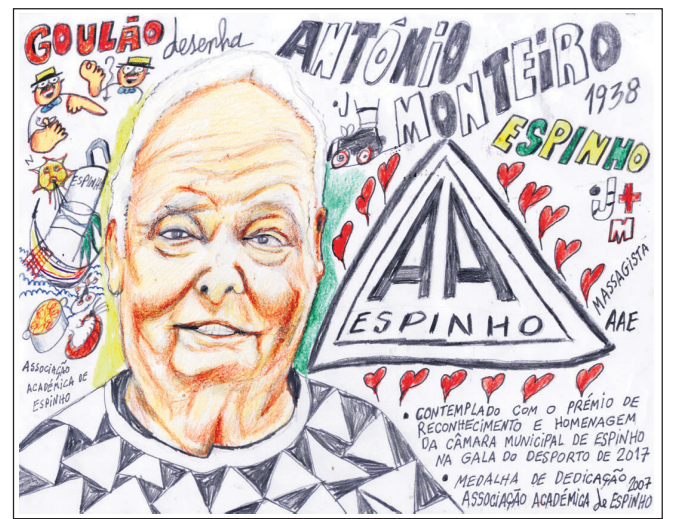 GOULÃO desenha
ANTÓNIO
MONTEIRO
1938
ESPINHO
ESPINHO
AA
ESPINHO
MASSAGISTA
AAE
ASSOCIAÇÃO
ACADÉMICA DE
ESPINHO
• CONTEMPLADO COM O PRÉMIO DE
RECONHECIMENTO E HOMENAGEM
DA CÂMARA MUNICIPAL DE ESPINHO
NA GALA DO DESPORTO DE 2017
• MEDALHA DE DEDICAÇÃO 2007
ASSOCIAÇÃO ACADÉMICA de ESPINHO